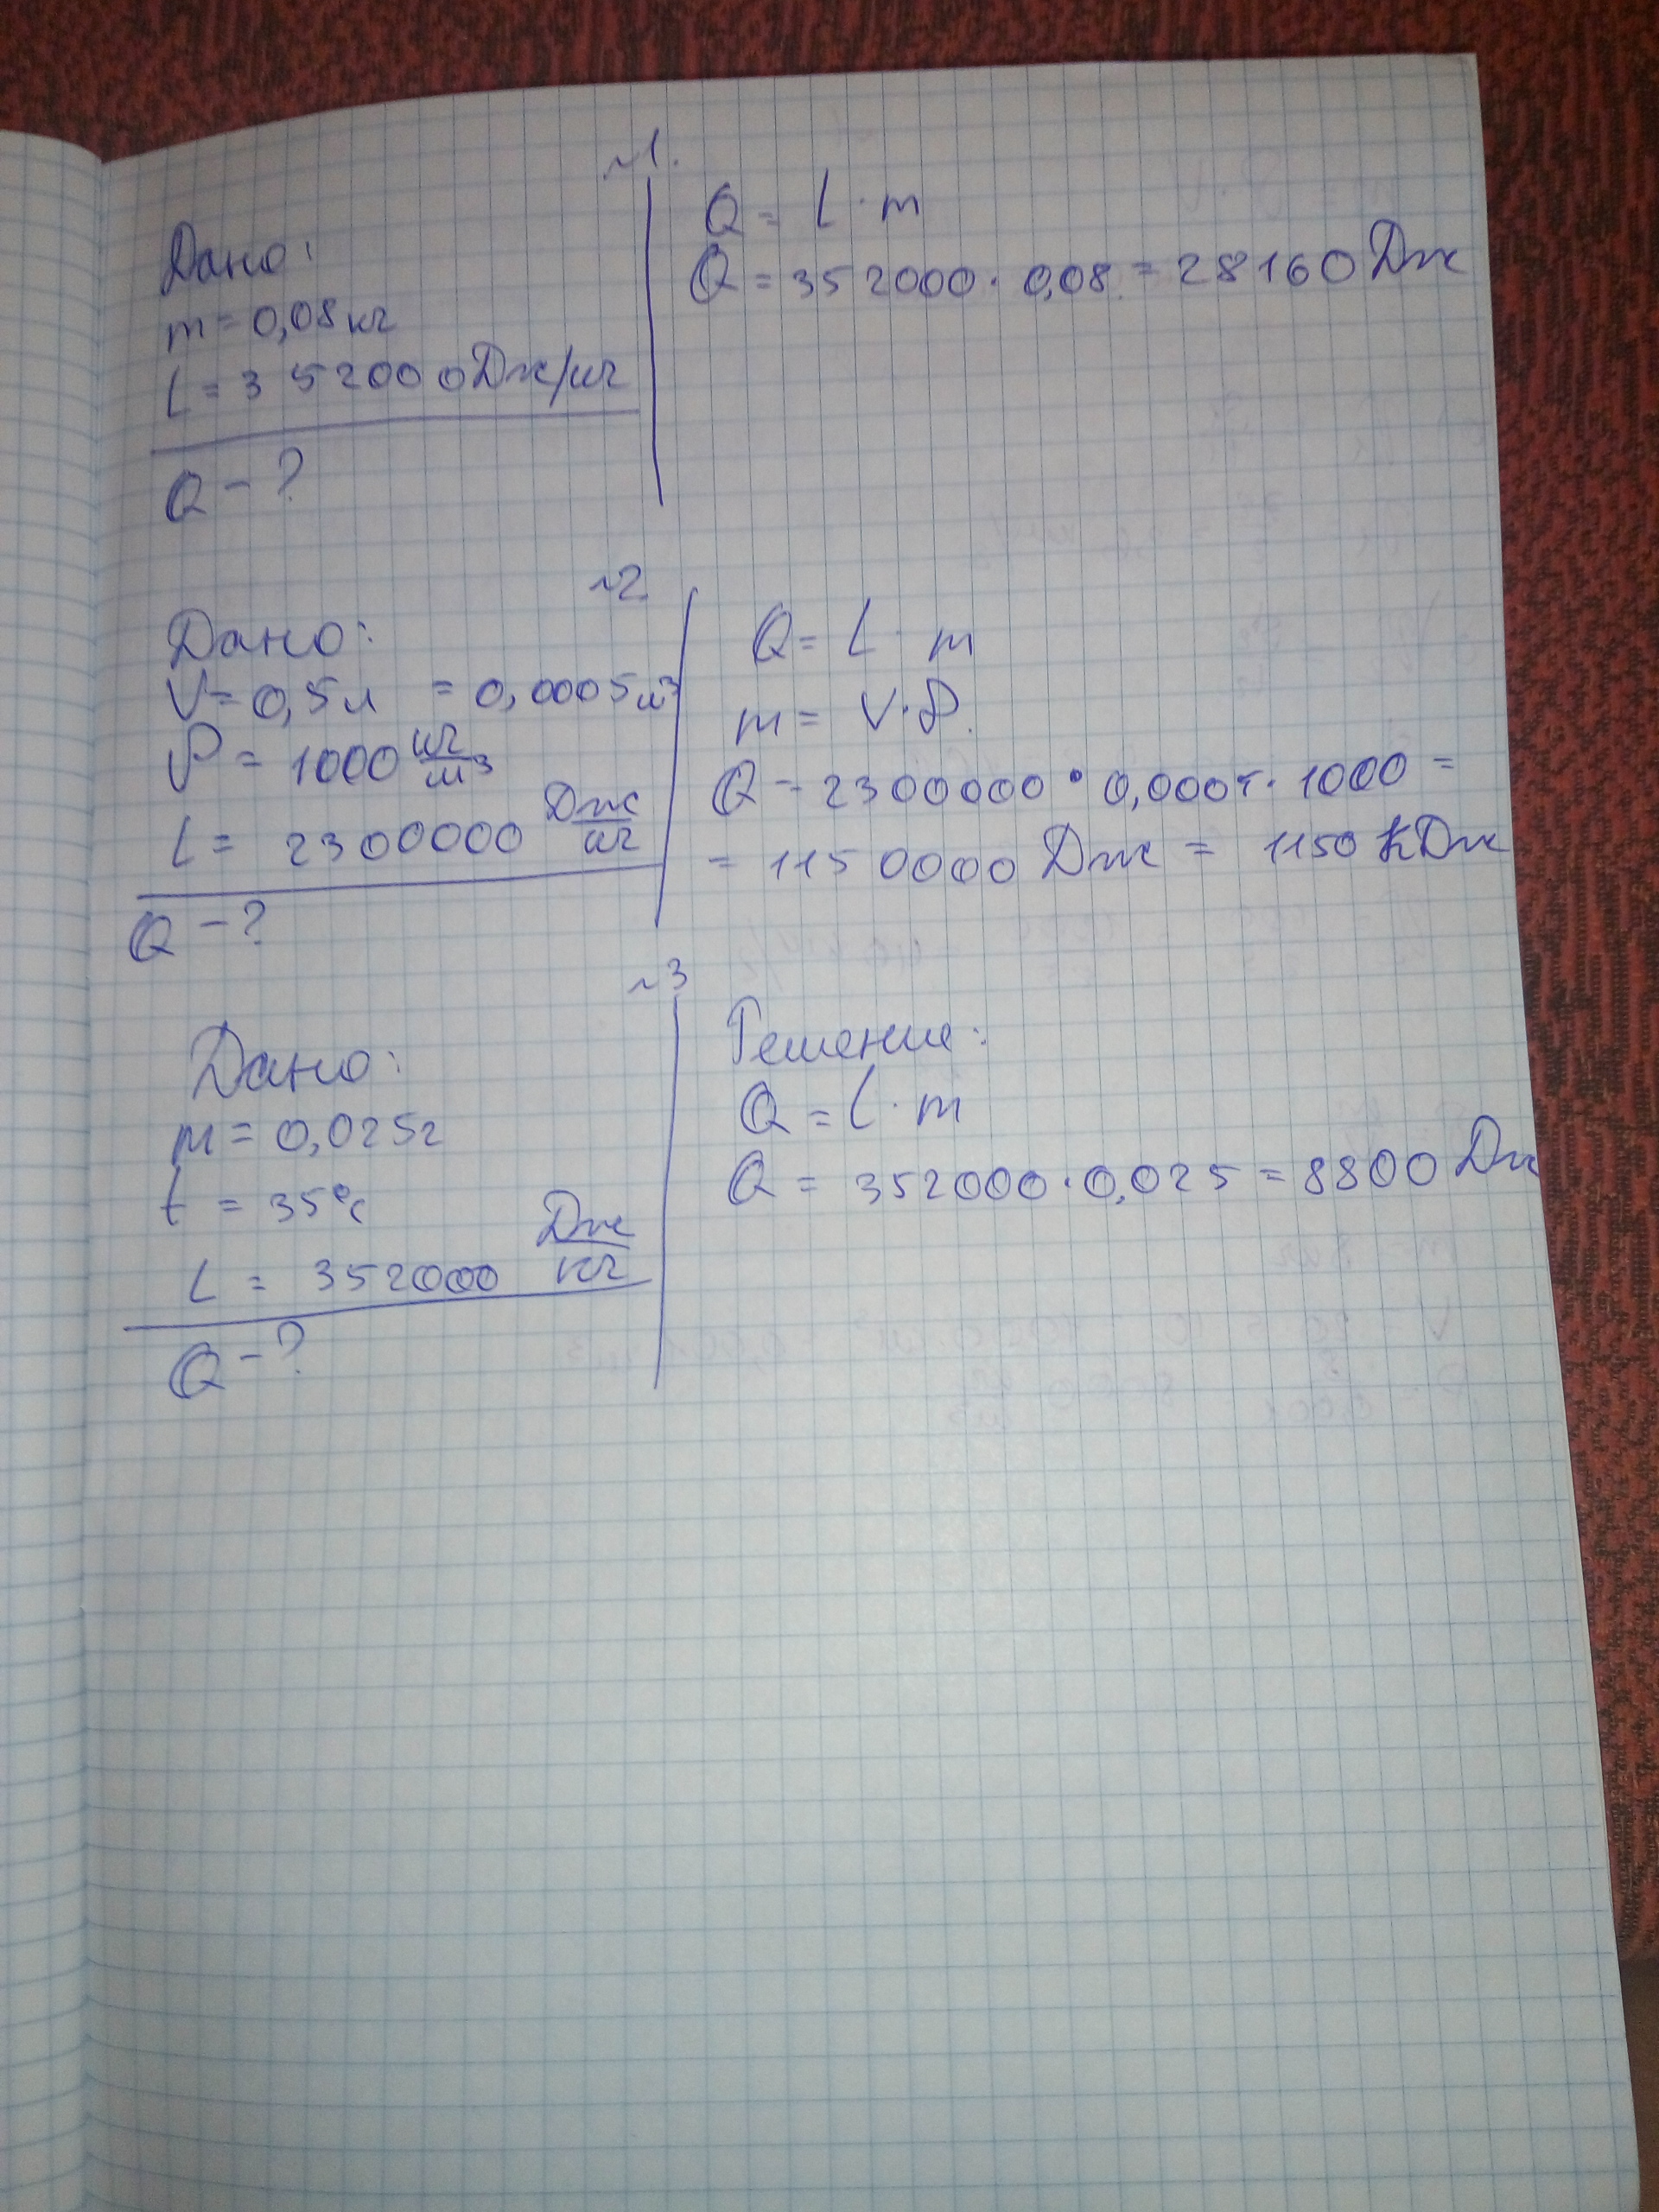 №1.
Дано:
m = 0,08 кг
L = 352000 Дж/кг
Q - ?
Q = L · m
Q = 352000 · 0,08 = 28160 Дж
№2.
Дано:
V = 0,5 л = 0,0005 м³
ρ = 1000 кг/м³
L = 2300000 Дж/кг
Q - ?
Q = L · m
m = V · ρ.
Q = 2300000 · 0,0005 · 1000 =
= 1150000 Дж = 1150 кДж
№3
Дано:
m = 0,025 г
t = 35°C
L = 352000 Дж/кг
Q - ?
Решение:
Q = L · m
Q = 352000 · 0,025 = 8800 Дж